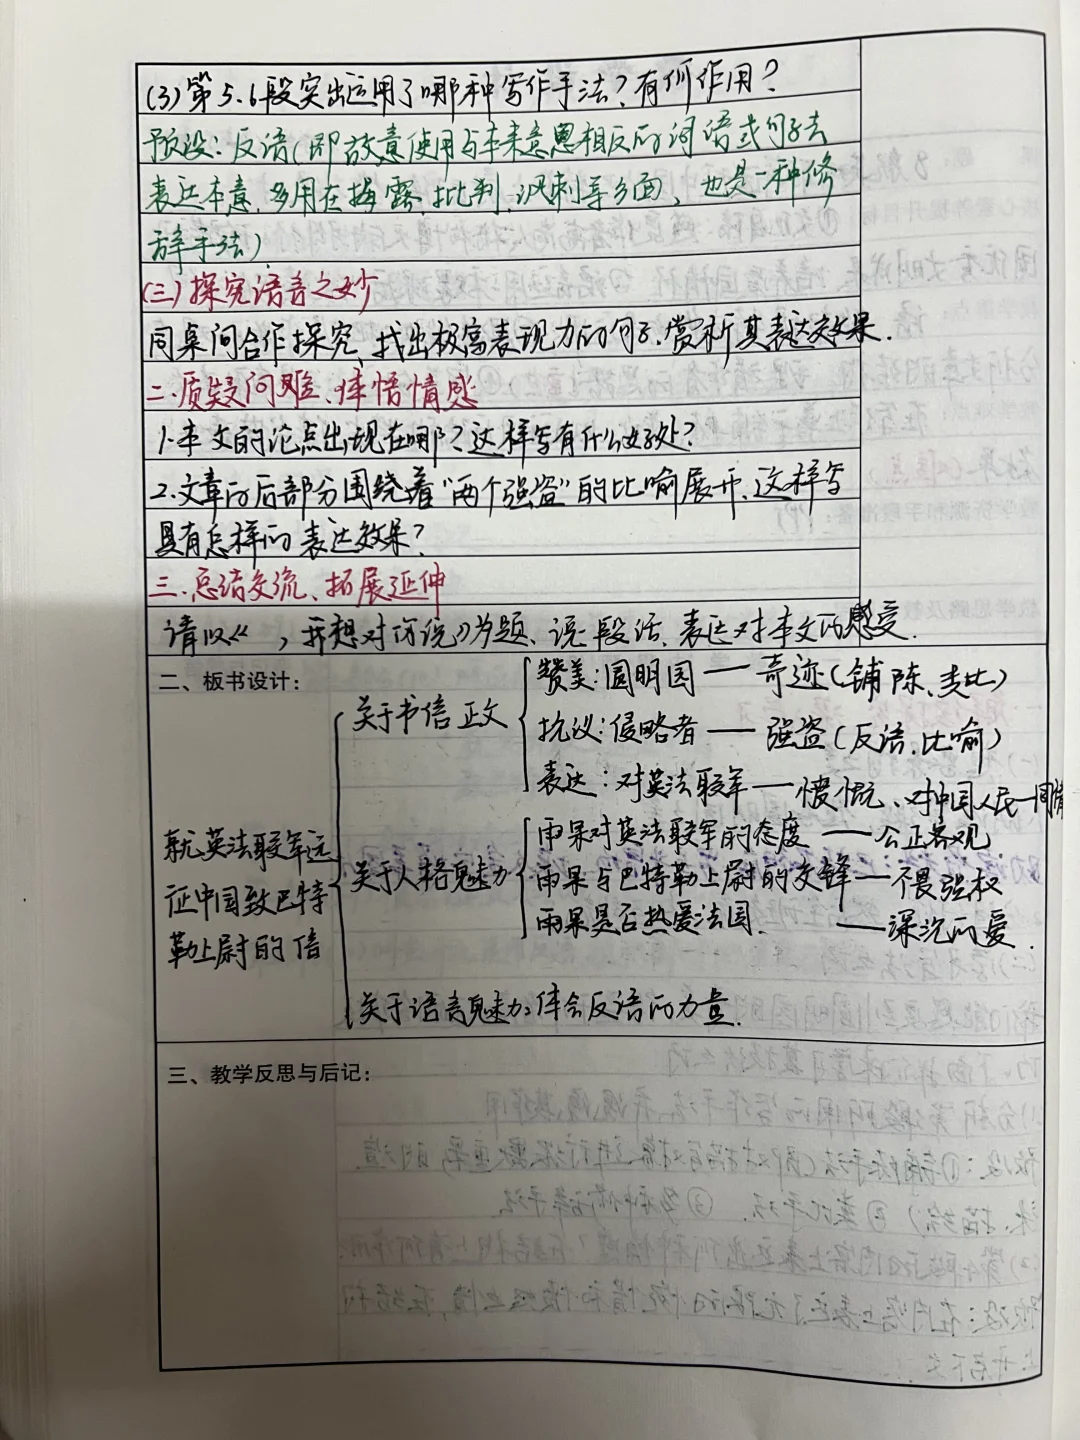 (3)第5.6段突出运用了哪种写作手法?有何作用?
预设:反语(即故意使用与本来意思相反的词语或句子去
表达本意,多用在揭露、批判、讽刺等方面,也是一种修
辞手法)
(三)探究语言之妙
同桌间合作探究、找出极富表现力的句子.赏析其表达效果.
二.质疑问难、体悟情感
1.本文的论点出现在哪?这样写有什么好处?
2.文章的后部分围绕着"两个强盗"的比喻展开、这样写
具有怎样的表达效果?
三.总结交流、拓展延伸
请以《 ,我想对你说》为题、说一段话、表达对本文的感受.
二、板书设计:
就英法联军远
征中国致巴特
勒上尉的信
关于书信正文
赞美:圆明园——奇迹(铺陈、类比)
抗议:侵略者——强盗(反语、比喻)
表达:对英法联军——愤慨、对中国人民—同情
关于人格魅力
雨果对英法联军的态度——公正客观
雨果与巴特勒上尉的交锋—不畏强权
雨果是否热爱法国.——深沉的爱.
关于语言魅力:体会反语的力量.
三、教学反思与后记: